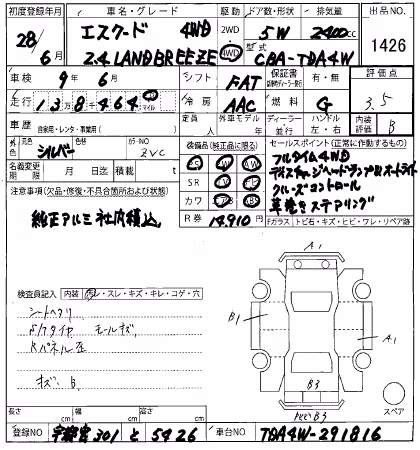 初度登録年月 車名・グレード 駆動 ドア数・形状 排気量 出品NO
28/6月 エスクード 4WD 2WD 4WD 5W 2400cc 1426
2.4 LANDBREEZE 型式 CBA-TDA4W
車検 9年 6月 シフト FAT 保証書 有・無 評価点
走行 138464 冷房 AAC 燃料 G 3.5
車歴 自家用・レンタ・事業用 定員 人 外車モデル ディーラー 並行 ハンドル 左・右 内装評価 B
外色 シルバー 元色 カラーNO ZVC 装備品(純正品に限る) セールスポイント(正常に作動するもの)
名義変更期限 月 日迄 積載 t
SR ナビ
カワ
フルタイム4WD
ディスチャージヘッドランプ オートライト
クルーズコントロール
革巻きステアリング
注意事項(欠品・修復・不具合箇所および状態)
純正アルミ社内積込
R券 14,910 円
Fガラス トビ石・キズ・ヒビ・ワレ・リペア跡
検査員記入 内装 ヨゴレ・スレ・キズ・キレ・コゲ・穴
シートヘタリ
モールキズ
キズ B
A1
B1
A1
B3
B3
スペア
長さ cm 幅 cm 高さ cm
登録NO 宇都宮 301 と 5426 車台NO TDA4W-291816